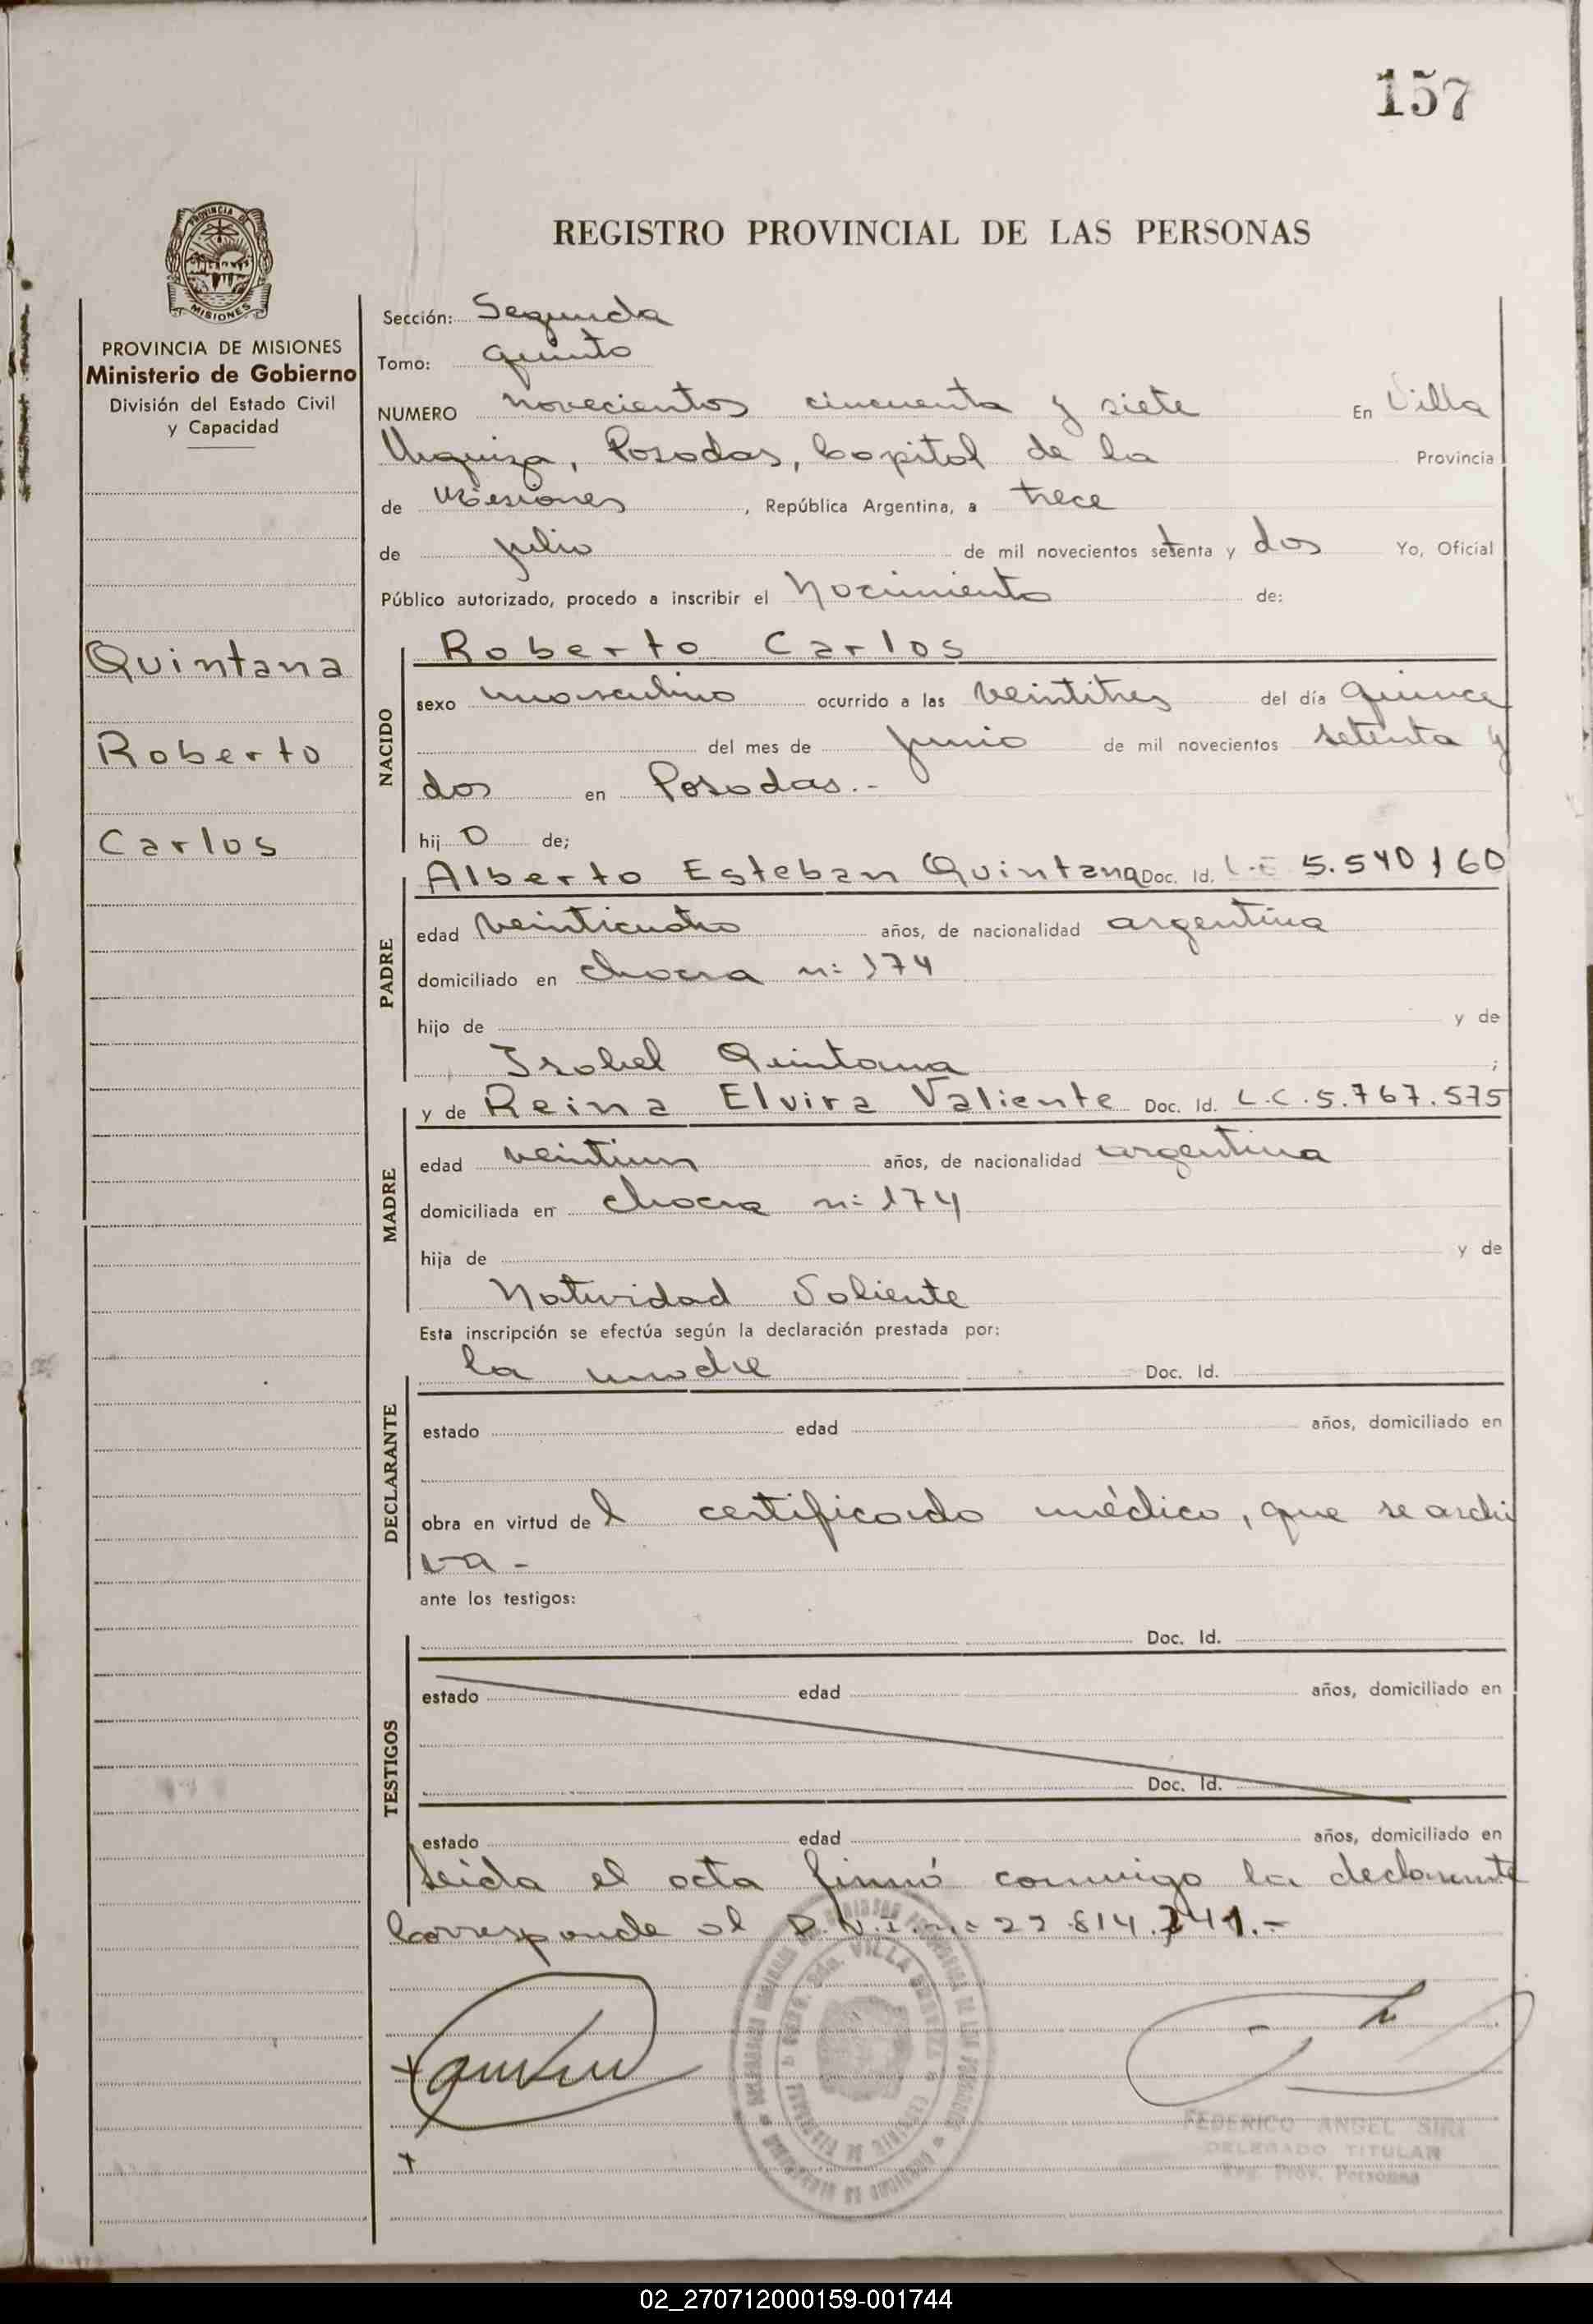 157
PROVINCIA DE
MISIONES
PROVINCIA DE MISIONES
Ministerio de Gobierno
División del Estado Civil
y Capacidad
Quintana
Roberto
Carlos
REGISTRO PROVINCIAL DE LAS PERSONAS
Sección: Segunda
Tomo: quinto
NUMERO novecientos cincuenta y siete En Villa
Urquiza, Posadas, Capital de la Provincia
de Misiones, República Argentina, a trece
de julio de mil novecientos setenta y dos Yo, Oficial
Público autorizado, procedo a inscribir el Nacimiento de:
NACIDO
Roberto Carlos
sexo masculino ocurrido a las veintitres del día quince
del mes de junio de mil novecientos setenta y
dos en Posadas.-
hijo de;
PADRE
Alberto Esteban Quintana Doc. Id. L.E 5.540160
edad veinticuatro años, de nacionalidad argentina
domiciliado en chacra n: 174
hijo de y de
Isabel Quintana ;
MADRE
y de Reina Elvira Valiente Doc. Id. L.C. 5.767.575
edad veintiun años, de nacionalidad argentina
domiciliada en chacra n: 174
hija de y de
Natividad Valiente
Esta inscripción se efectúa según la declaración prestada por:
DECLARANTE
la madre Doc. Id.
estado edad años, domiciliado en
obra en virtud del certificado médico, que se archi
va -
ante los testigos:
TESTIGOS
Doc. Id.
estado edad años, domiciliado en
Doc. Id.
estado edad años, domiciliado en
Leida el acta firmó conmigo la declarante
Corresponde al D.N.I. n: 22.814.241.-
VILLA
FEDERICO ANGEL SIRI
DELEGADO TITULAR
Reg. Prov. Personas
02_270712000159-001744